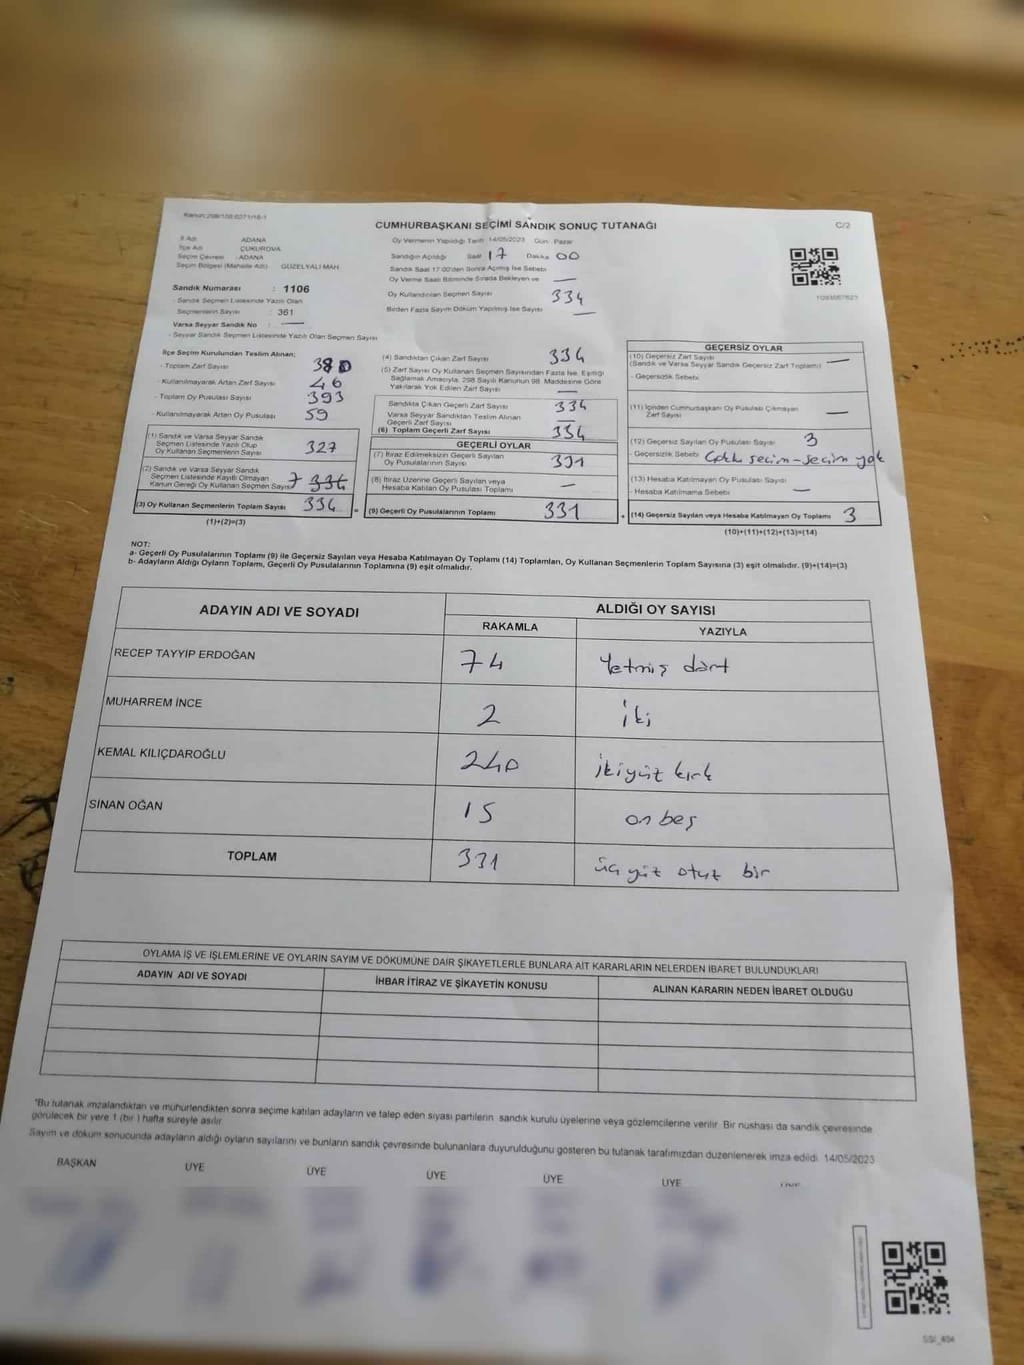 Kanun:298/108;6271/16-1
CUMHURBAŞKANI SEÇİMİ SANDIK SONUÇ TUTANAĞI
C/2
İl Adı ADANA
İlçe Adı ÇUKUROVA
Seçim Çevresi : ADANA
Seçim Bölgesi (Mahalle Adı) GÜZELYALI MAH.
Sandık Numarası : 1106
- Sandık Seçmen Listesinde Yazılı Olan
Seçmenlerin Sayısı : 361
Varsa Seyyar Sandık No : —
- Seyyar Sandık Seçmen Listesinde Yazılı Olan Seçmen Sayısı
Oy Vermenin Yapıldığı Tarih 14/05/2023 Gün Pazar
Sandığın Açıldığı Saat 17 Dakika 00
Sandık Saat 17:00'den Sonra Açılmış İse Sebebi
Oy Verme Saati Bitiminde Sırada Bekleyen ve —
Oy Kullandırılan Seçmen Sayısı 334
Birden Fazla Sayım Döküm Yapılmış İse Sayısı —
İlçe Seçim Kurulundan Teslim Alınan;
- Toplam Zarf Sayısı 380
- Kullanılmayarak Artan Zarf Sayısı 46
- Toplam Oy Pusulası Sayısı 393
- Kullanılmayarak Artan Oy Pusulası 59
(1) Sandık ve Varsa Seyyar Sandık
Seçmen Listesinde Yazılı Olup
Oy Kullanan Seçmenlerin Sayısı 327
(2) Sandık ve Varsa Seyyar Sandık
Seçmen Listesinde Kayıtlı Olmayan
Kanun Gereği Oy Kullanan Seçmen Sayısı 7 334
(3) Oy Kullanan Seçmenlerin Toplam Sayısı 334
(1)+(2)=(3)
(4) Sandıktan Çıkan Zarf Sayısı 334
(5) Zarf Sayısı Oy Kullanan Seçmen Sayısından Fazla İse, Eşitliği
Sağlamak Amacıyla, 298 Sayılı Kanunun 98. Maddesine Göre
Yakılarak Yok Edilen Zarf Sayısı —
Sandıkta Çıkan Geçerli Zarf Sayısı 334
Varsa Seyyar Sandıktan Teslim Alınan
Geçerli Zarf Sayısı —
(6) Toplam Geçerli Zarf Sayısı 334
GEÇERLİ OYLAR
(7) İtiraz Edilmeksizin Geçerli Sayılan
Oy Pusulalarının Sayısı 331
(8) İtiraz Üzerine Geçerli Sayılan veya
Hesaba Katılan Oy Pusulası Toplamı —
= (9) Geçerli Oy Pusulalarının Toplamı 331
GEÇERSİZ OYLAR
(10) Geçersiz Zarf Sayısı
(Sandık ve Varsa Seyyar Sandık Geçersiz Zarf Toplamı) —
- Geçersizlik Sebebi
(11) İçinden Cumhurbaşkanı Oy Pusulası Çıkmayan
Zarf Sayısı —
(12) Geçersiz Sayılan Oy Pusulası Sayısı 3
- Geçersizlik Sebebi Çoklu seçim-seçim yok
(13) Hesaba Katılmayan Oy Pusulası Sayısı
- Hesaba Katılmama Sebebi —
+ (14) Geçersiz Sayılan veya Hesaba Katılmayan Oy Toplamı 3
(10)+(11)+(12)+(13)=(14)
NOT:
a- Geçerli Oy Pusulalarının Toplamı (9) ile Geçersiz Sayılan veya Hesaba Katılmayan Oy Toplamı (14) Toplamları, Oy Kullanan Seçmenlerin Toplam Sayısına (3) eşit olmalıdır. (9)+(14)=(3)
b- Adayların Aldığı Oyların Toplamı, Geçerli Oy Pusulalarının Toplamına (9) eşit olmalıdır.
ADAYIN ADI VE SOYADI ALDIĞI OY SAYISI
RAKAMLA YAZIYLA
RECEP TAYYIP ERDOĞAN 74 Yetmiş dört
MUHARREM İNCE 2 iki
KEMAL KILIÇDAROĞLU 240 ikiyüz kırk
SİNAN OĞAN 15 on beş
TOPLAM 331 üç yüz otuz bir
OYLAMA İŞ VE İŞLEMLERİNE VE OYLARIN SAYIM VE DÖKÜMÜNE DAİR ŞİKAYETLERLE BUNLARA AİT KARARLARIN NELERDEN İBARET BULUNDUKLARI
ADAYIN ADI VE SOYADI İHBAR İTİRAZ VE ŞİKAYETİN KONUSU ALINAN KARARIN NEDEN İBARET OLDUĞU
"Bu tutanak imzalandıktan ve mühürlendikten sonra seçime katılan adayların ve talep eden siyasi partilerin sandık kurulu üyelerine veya gözlemcilerine verilir. Bir nüshası da sandık çevresinde
görülecek bir yere 1 (bir) hafta süreyle asılır.
Sayım ve döküm sonucunda adayların aldığı oyların sayılarını ve bunların sandık çevresinde bulunanlara duyurulduğunu gösteren bu tutanak tarafımızdan düzenlenerek imza edildi. 14/05/2023
BAŞKAN ÜYE ÜYE ÜYE ÜYE ÜYE ÜYE